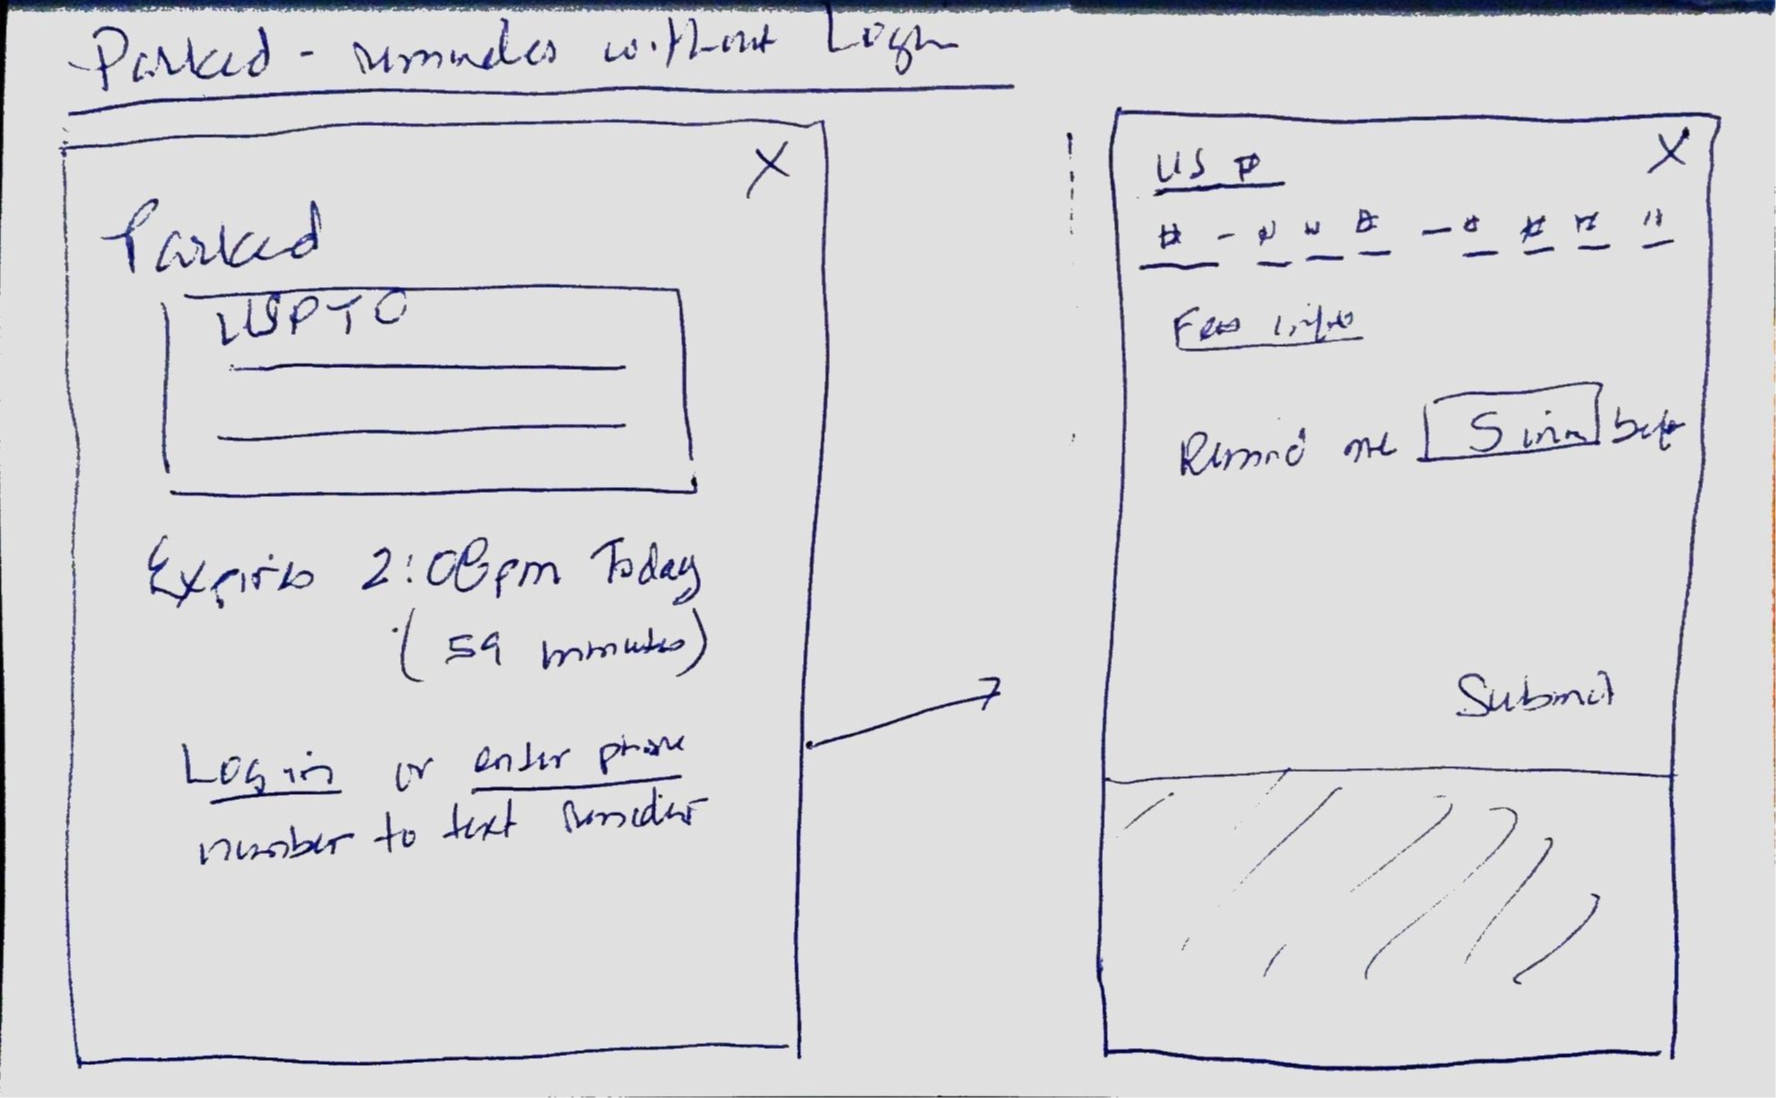 Parked - reminders without Login
X
Parked
USPTO
Expires 2:08pm Today
(59 minutes)
Log in or enter phone
number to text reminder
X
US
# - # # # - # # # #
Fees info
Remind me 5 min before
Submit